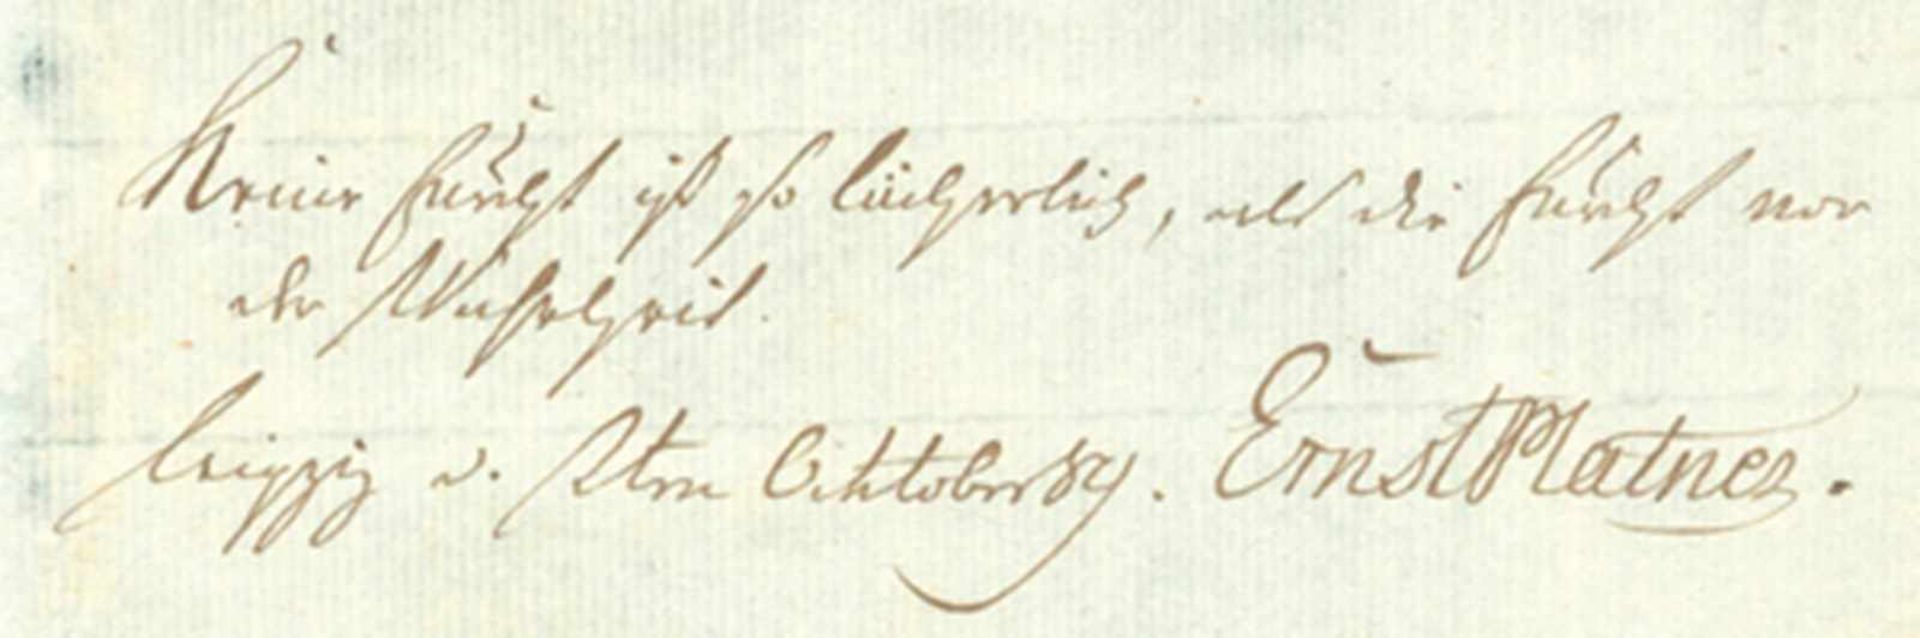 Keine Furcht ist so lächerlich, als die Furcht vor
der Wahrheit.
Leipzig d. 2ten Oktober 84. Ernst Platner.